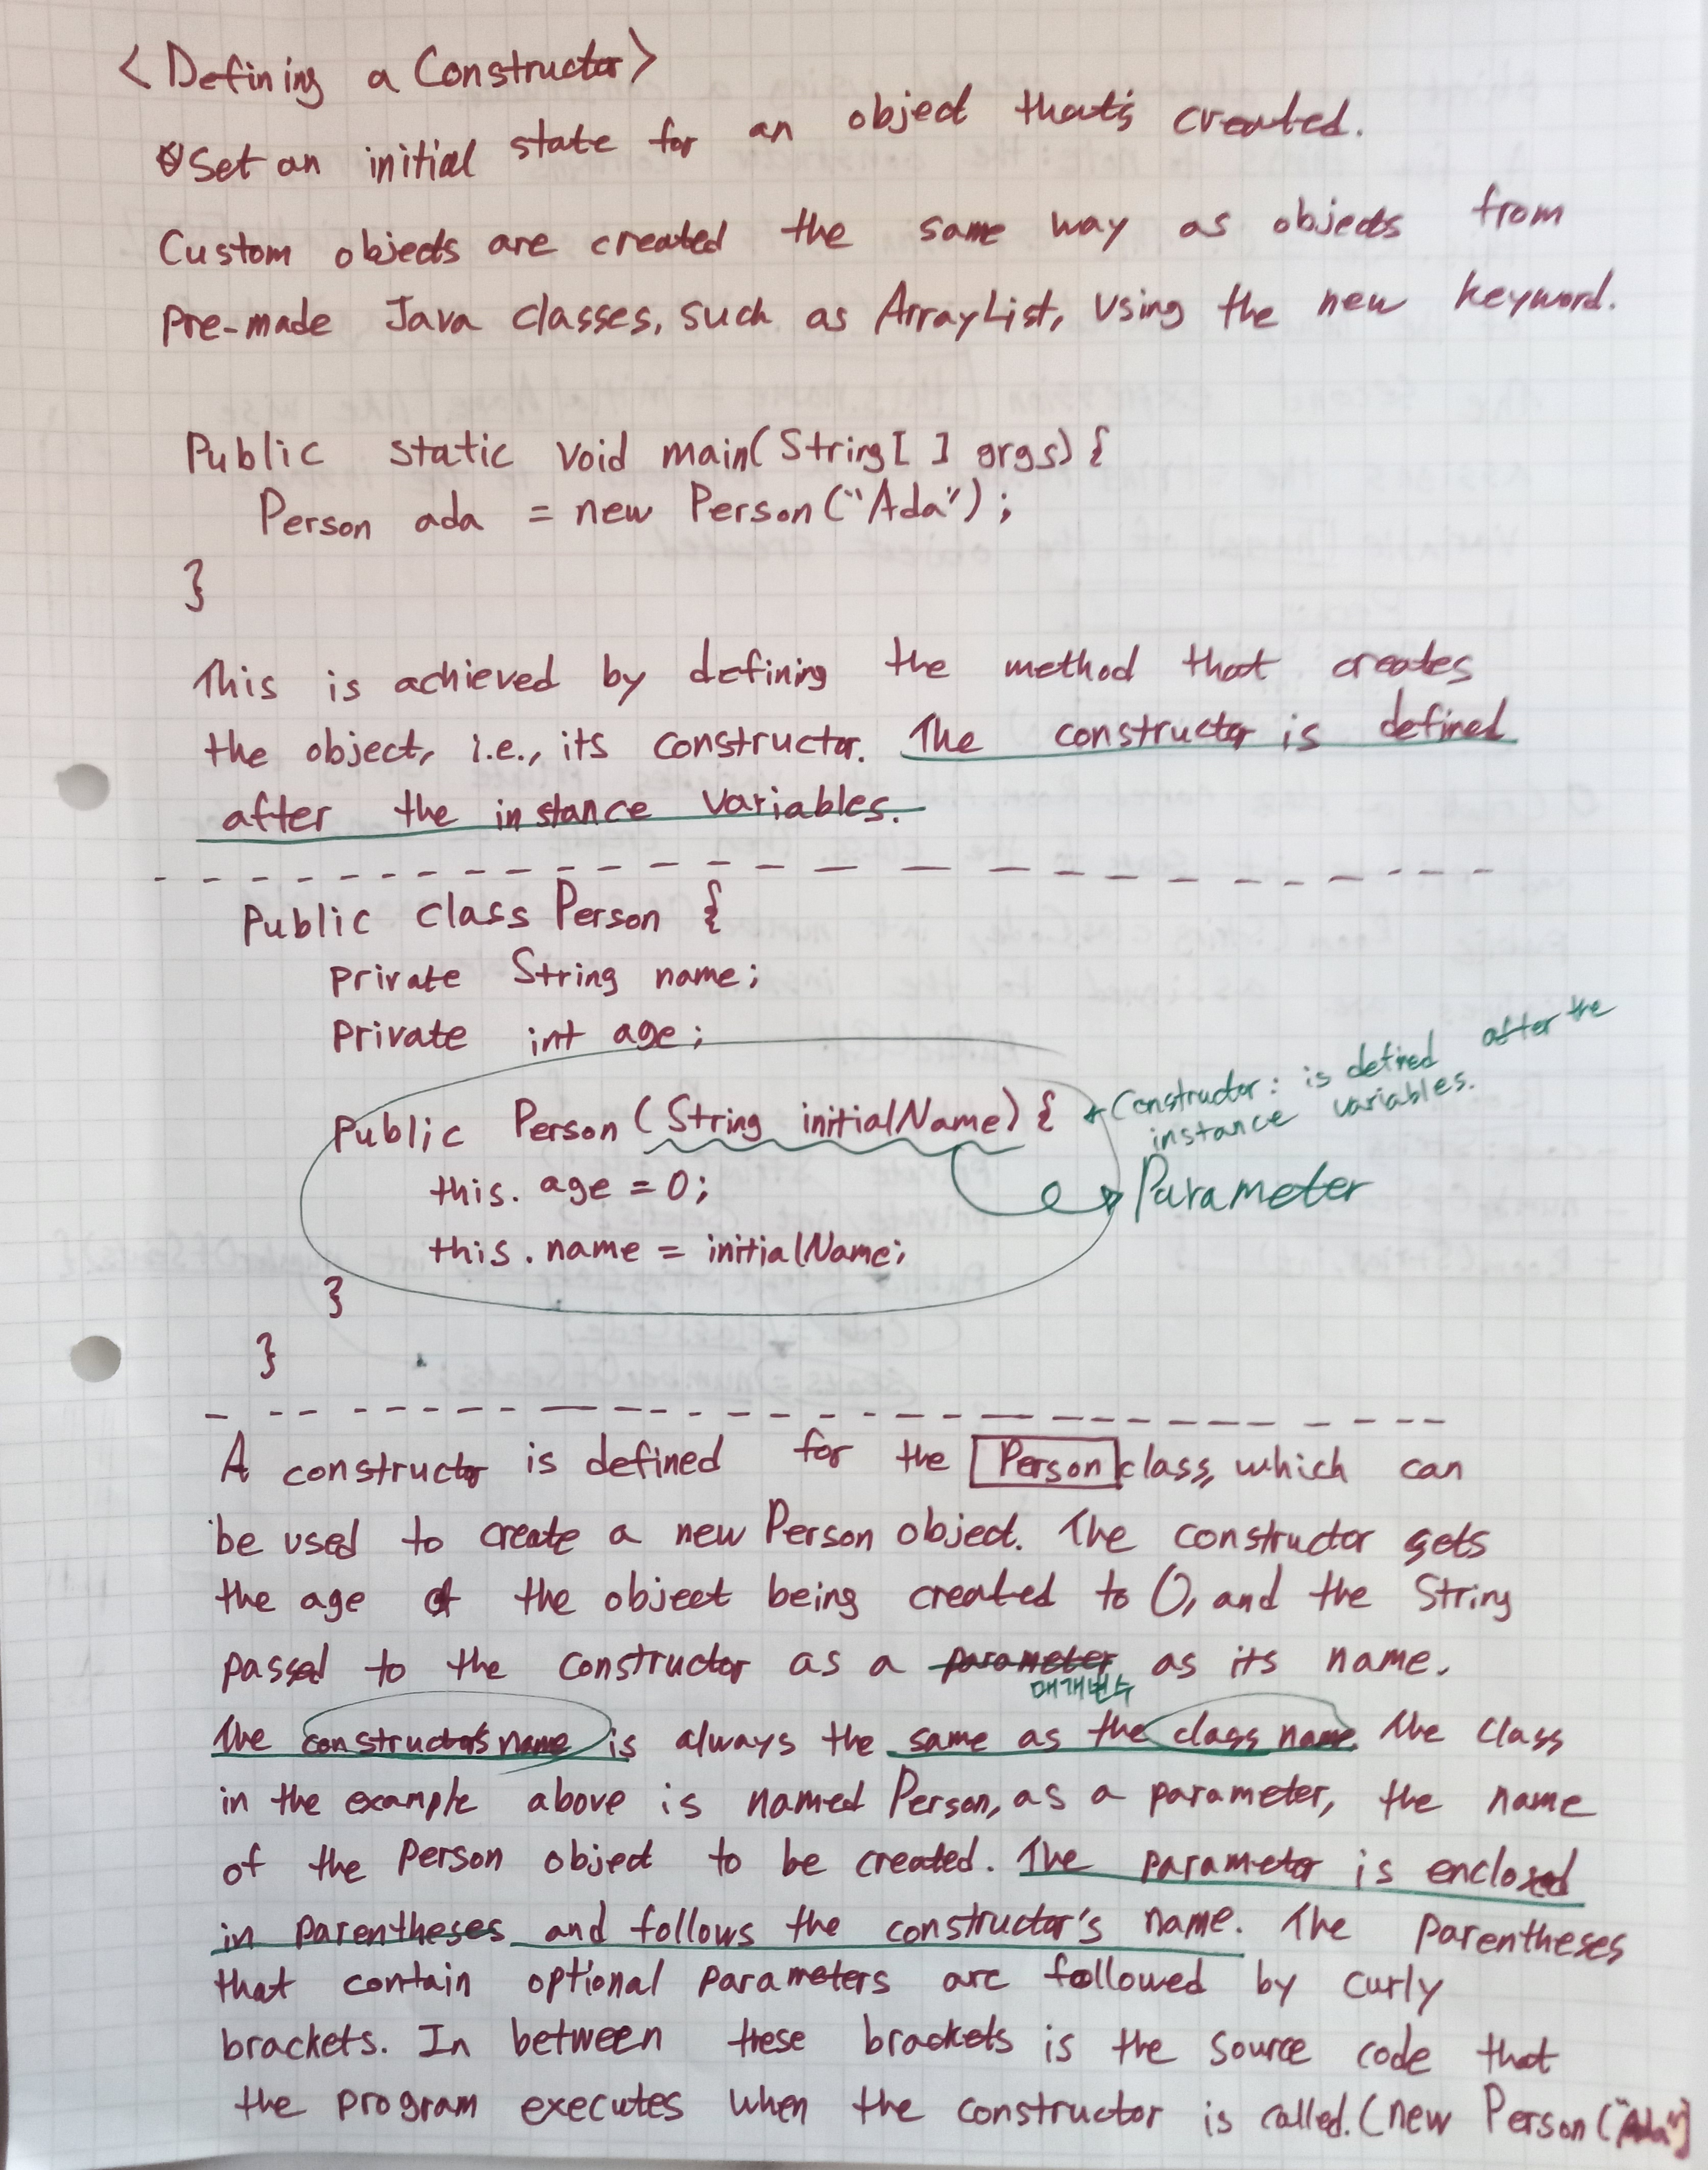 <Defining a Constructor>
Set an initial state for an object that's created.
Custom objects are created the same way as objects from
pre-made Java classes, such as ArrayList, using the new keyword.
Public static void main(String[ ] args) {
Person ada = new Person("Ada");
}
This is achieved by defining the method that creates
the object, i.e., its constructor. The constructor is defined
after the instance variables.
Public class Person {
private String name;
private int age;
Public Person (String initialName) {
Constructor: is defined after the
instance variables.
Parameter
this. age = 0;
this. name = initialName;
}
}
A constructor is defined for the Person class, which can
be used to create a new Person object. The constructor sets
the age of the object being created to 0, and the String
passed to the constructor as a parameter as its name.
매개변수
The constructor's name is always the same as the class name. The class
in the example above is named Person, as a parameter, the name
of the Person object to be created. The parameter is enclosed
in parentheses and follows the constructor's name. The parentheses
that contain optional parameters are followed by curly
brackets. In between these brackets is the source code that
the program executes when the constructor is called. (new Person ("Ada")